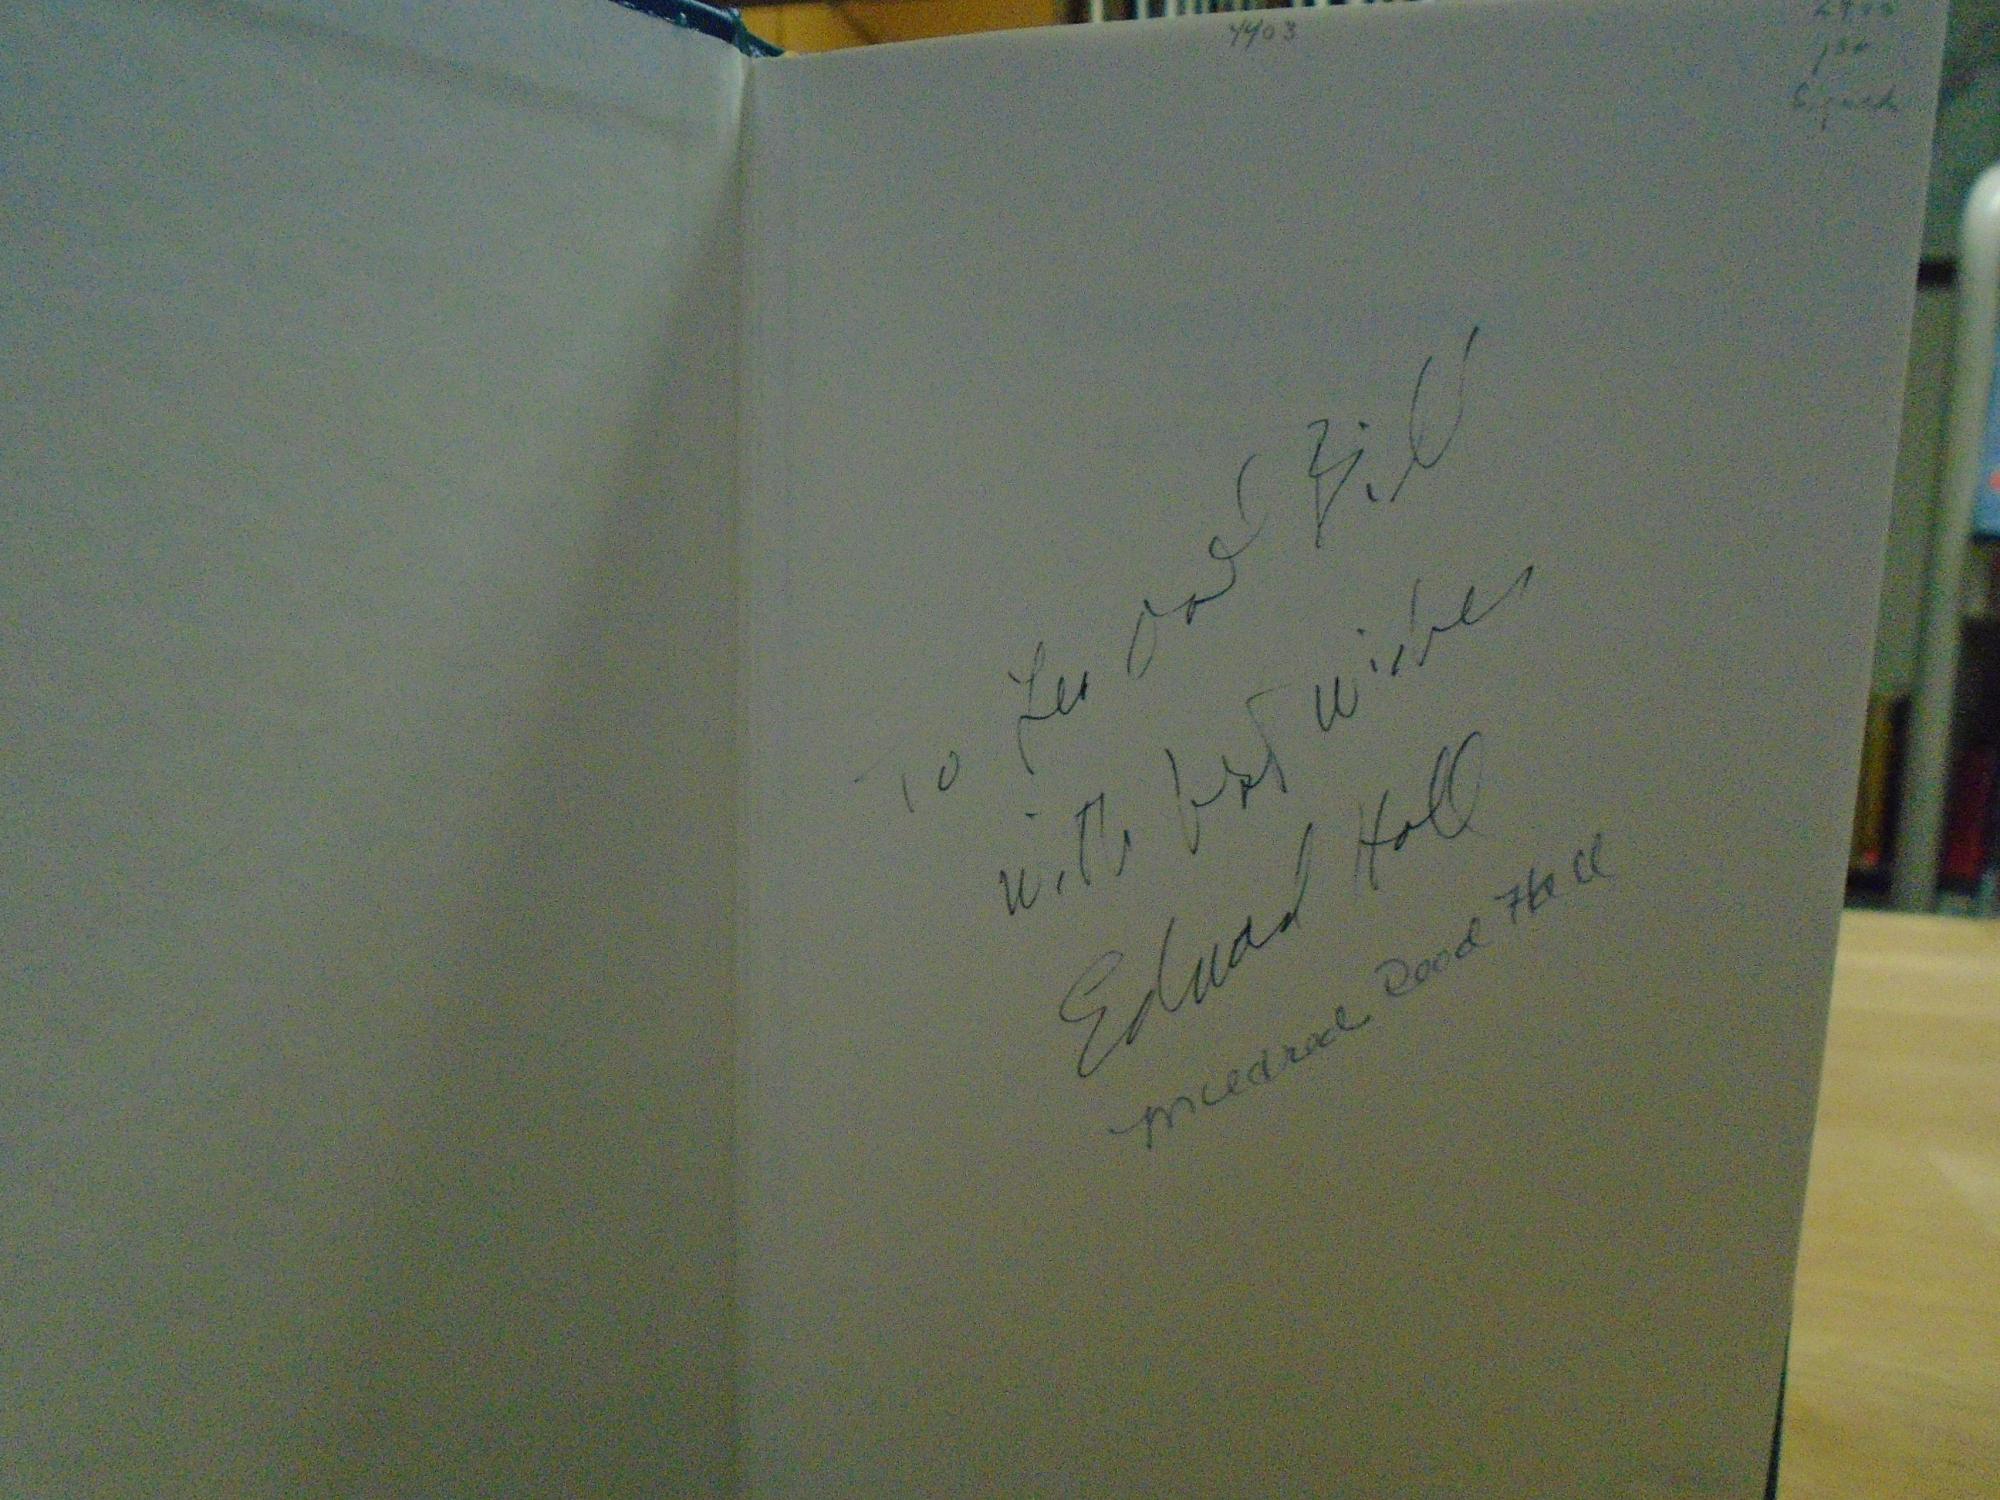 4403
Signed
To Lee and Bill
with best wishes
Edward Hall
Mildred Reed Hall